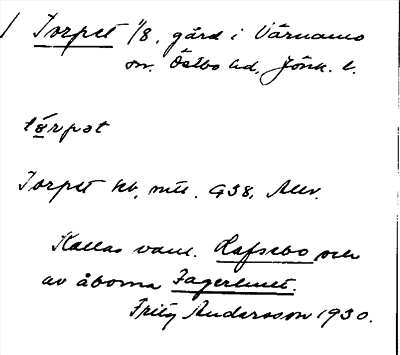 Torpet 1/8. gård i Värnamo
sn. Östbo hd, Jönk. l.
tɷrpət
Torpet hb, mtl. 938, Allv.
Kallas vanl. Hafsebo och
av åborna Fagerlunet.
Fritz Andersson 1930.